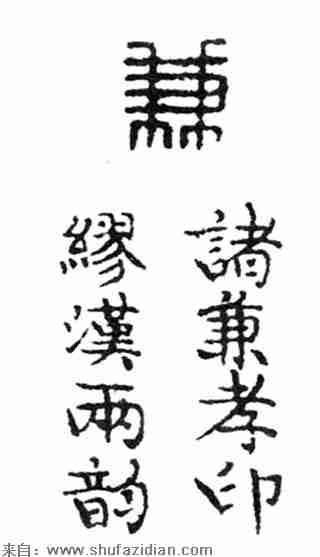 兼
諸兼孝印
繆漢兩韵
来自: www.shufazidian.com